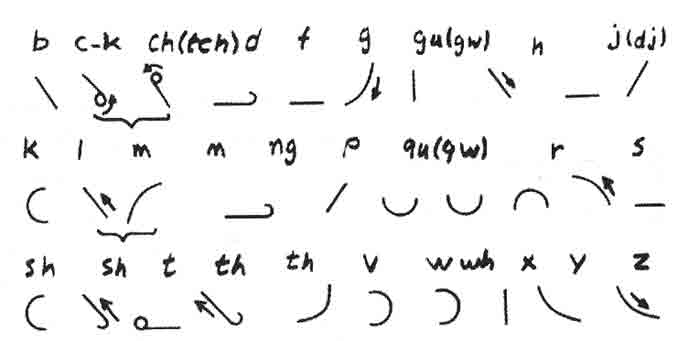 b c-k ch(tch) d f g gu(gw) h j(dj)
k l m m ng p qu(qw) r s
sh sh t th th v w wh x y z